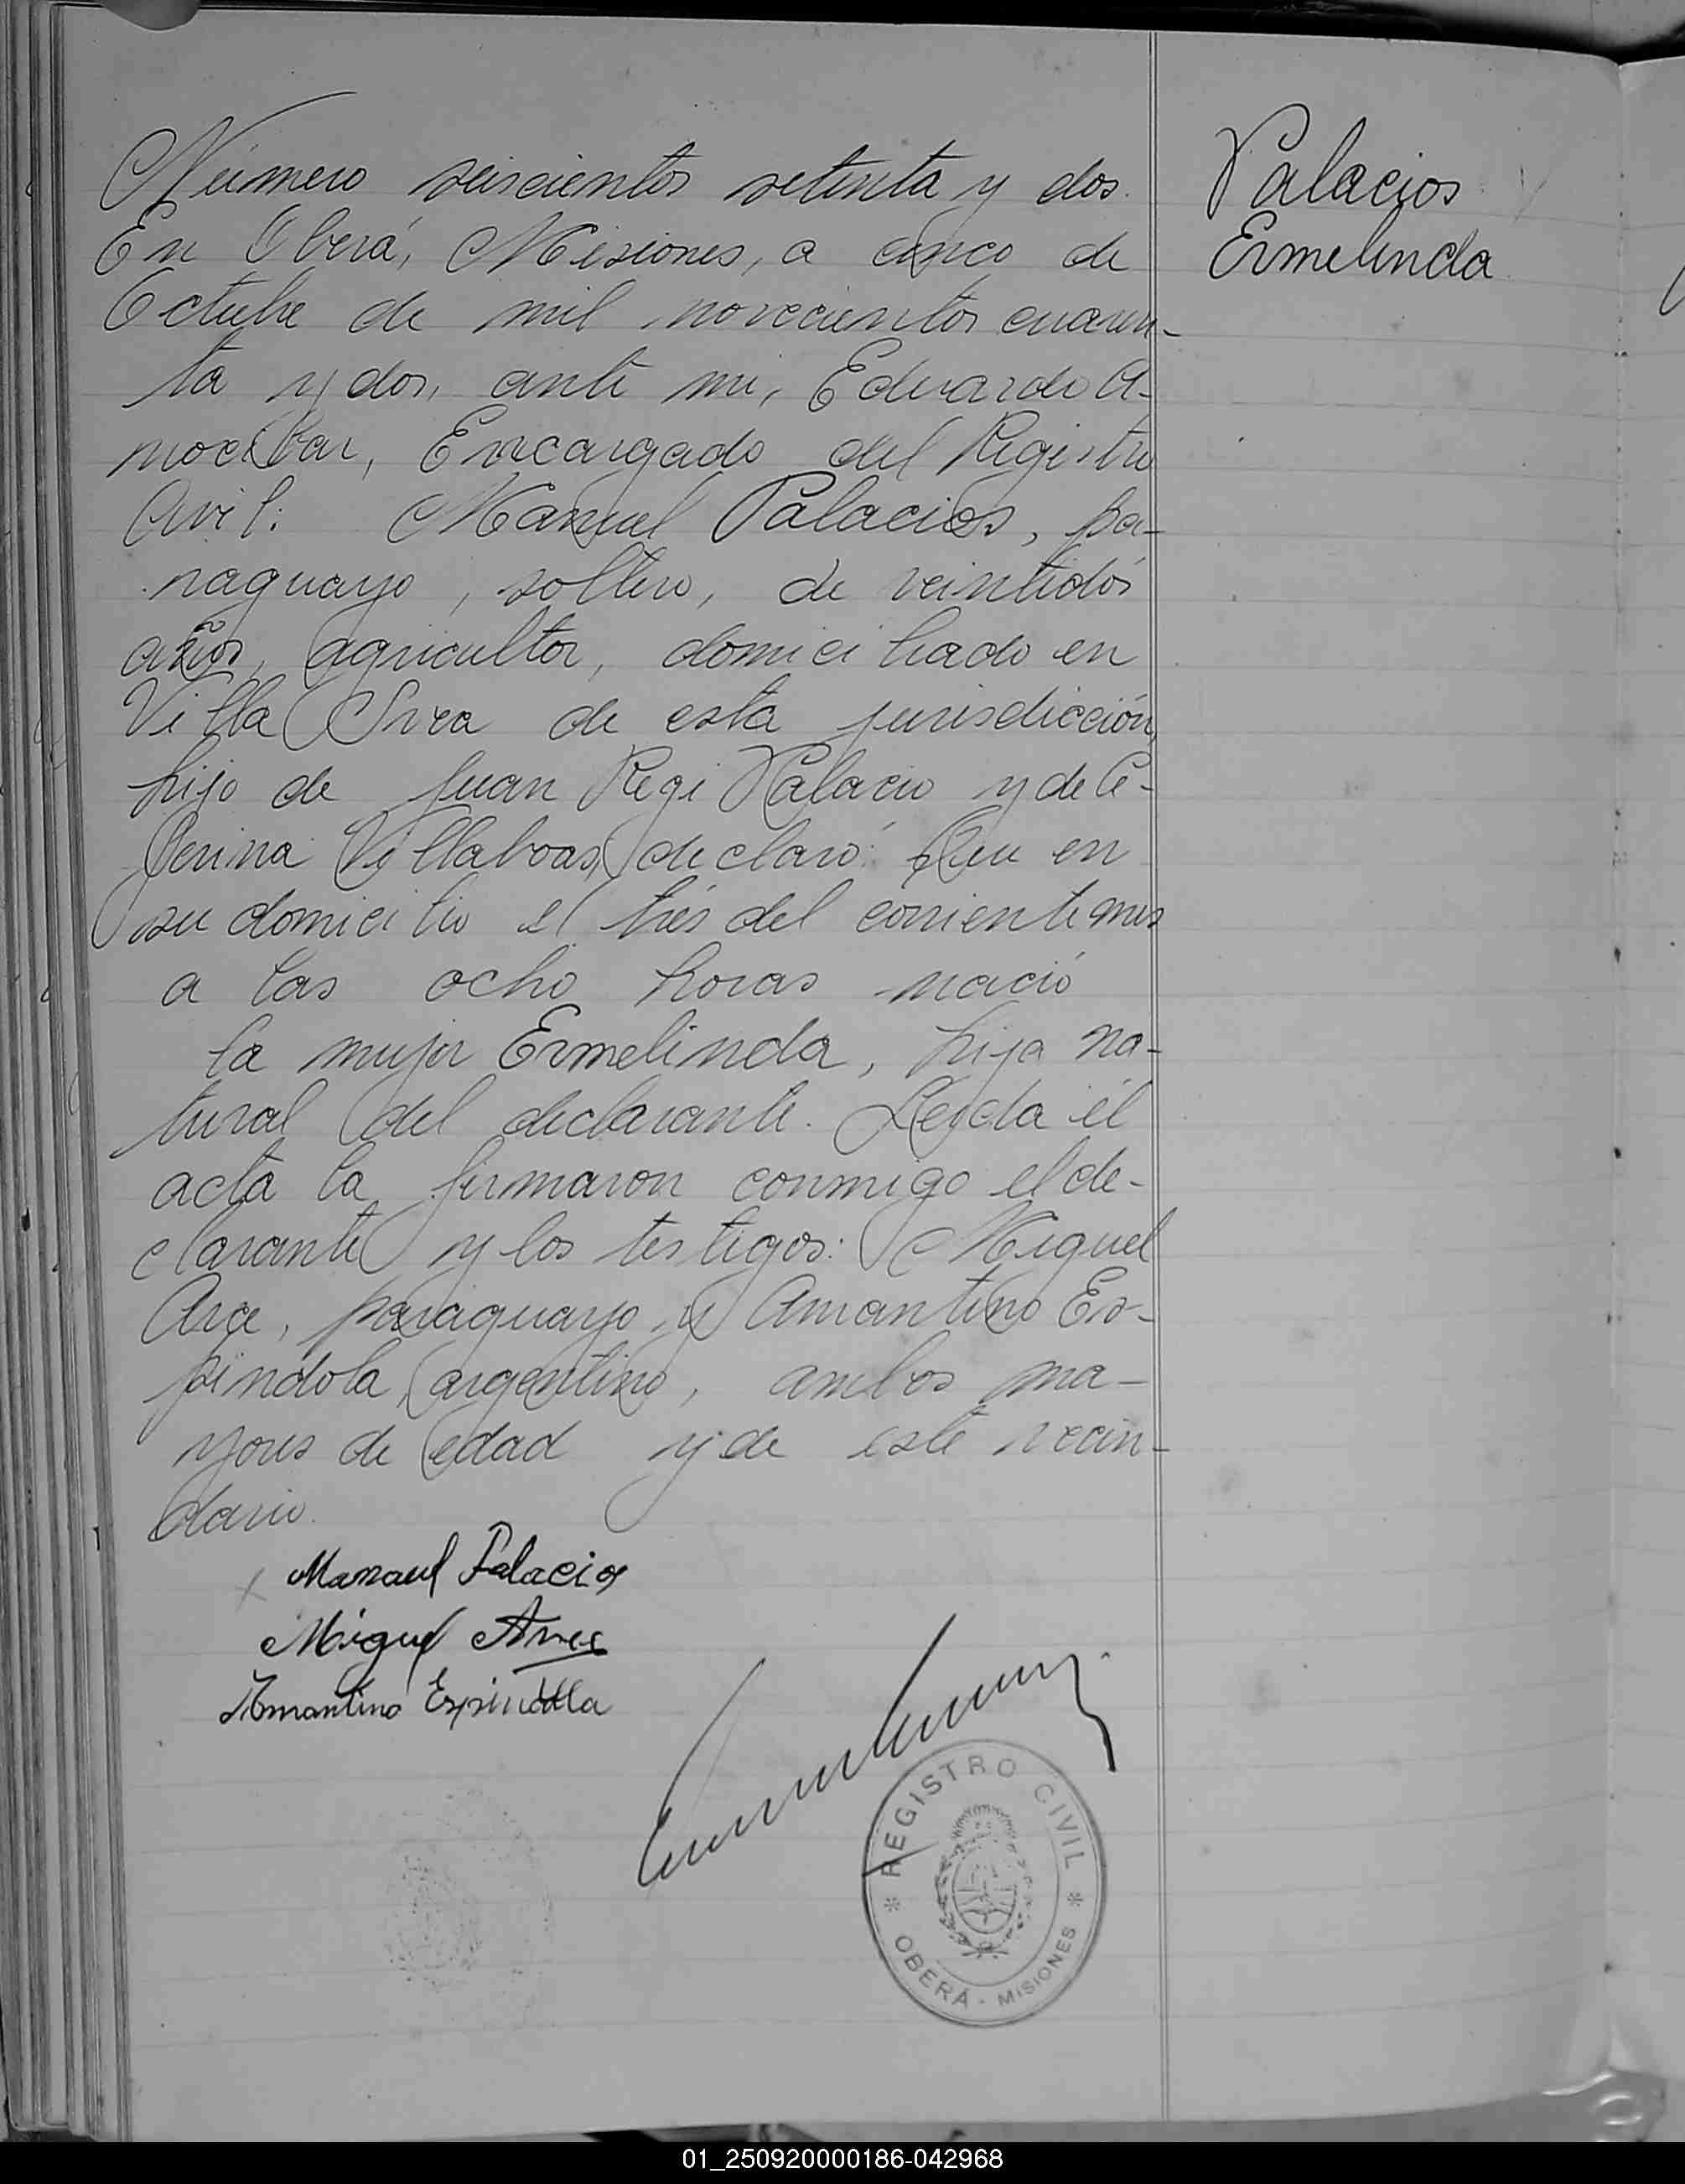 Número seiscientos setenta y dos.
En Oberá, Misiones, a cinco de
Octubre de mil novecientos cuaren-
ta y dos, ante mi, Eduardo A-
Encargado del Registro
Civil: Manuel Palacios, pa-
raguayo, soltero, de veintidós
años, agricultor, domiciliado en
Villa Svea de esta jurisdicción,
hijo de Juan Regi Palacio y de Ce-
Villaboas, declaró: Que en
su domicilio el trés del corriente mes
a las ocho horas nació
la mujer Ermelinda, hija na-
tural del declarante. Leida el
acta la firmaron conmigo el de-
clarante y los testigos: Miguel
Arce, paraguayo, y Amantino Es-
pindola, argentino, ambos ma-
yores de edad y de este vecin-
dario.
Palacios
Ermelinda
Manauel Palacios
Miguel Arce
Amantino Espindola
REGISTRO CIVIL
OBERÁ - MISIONES
01_250920000186-042968